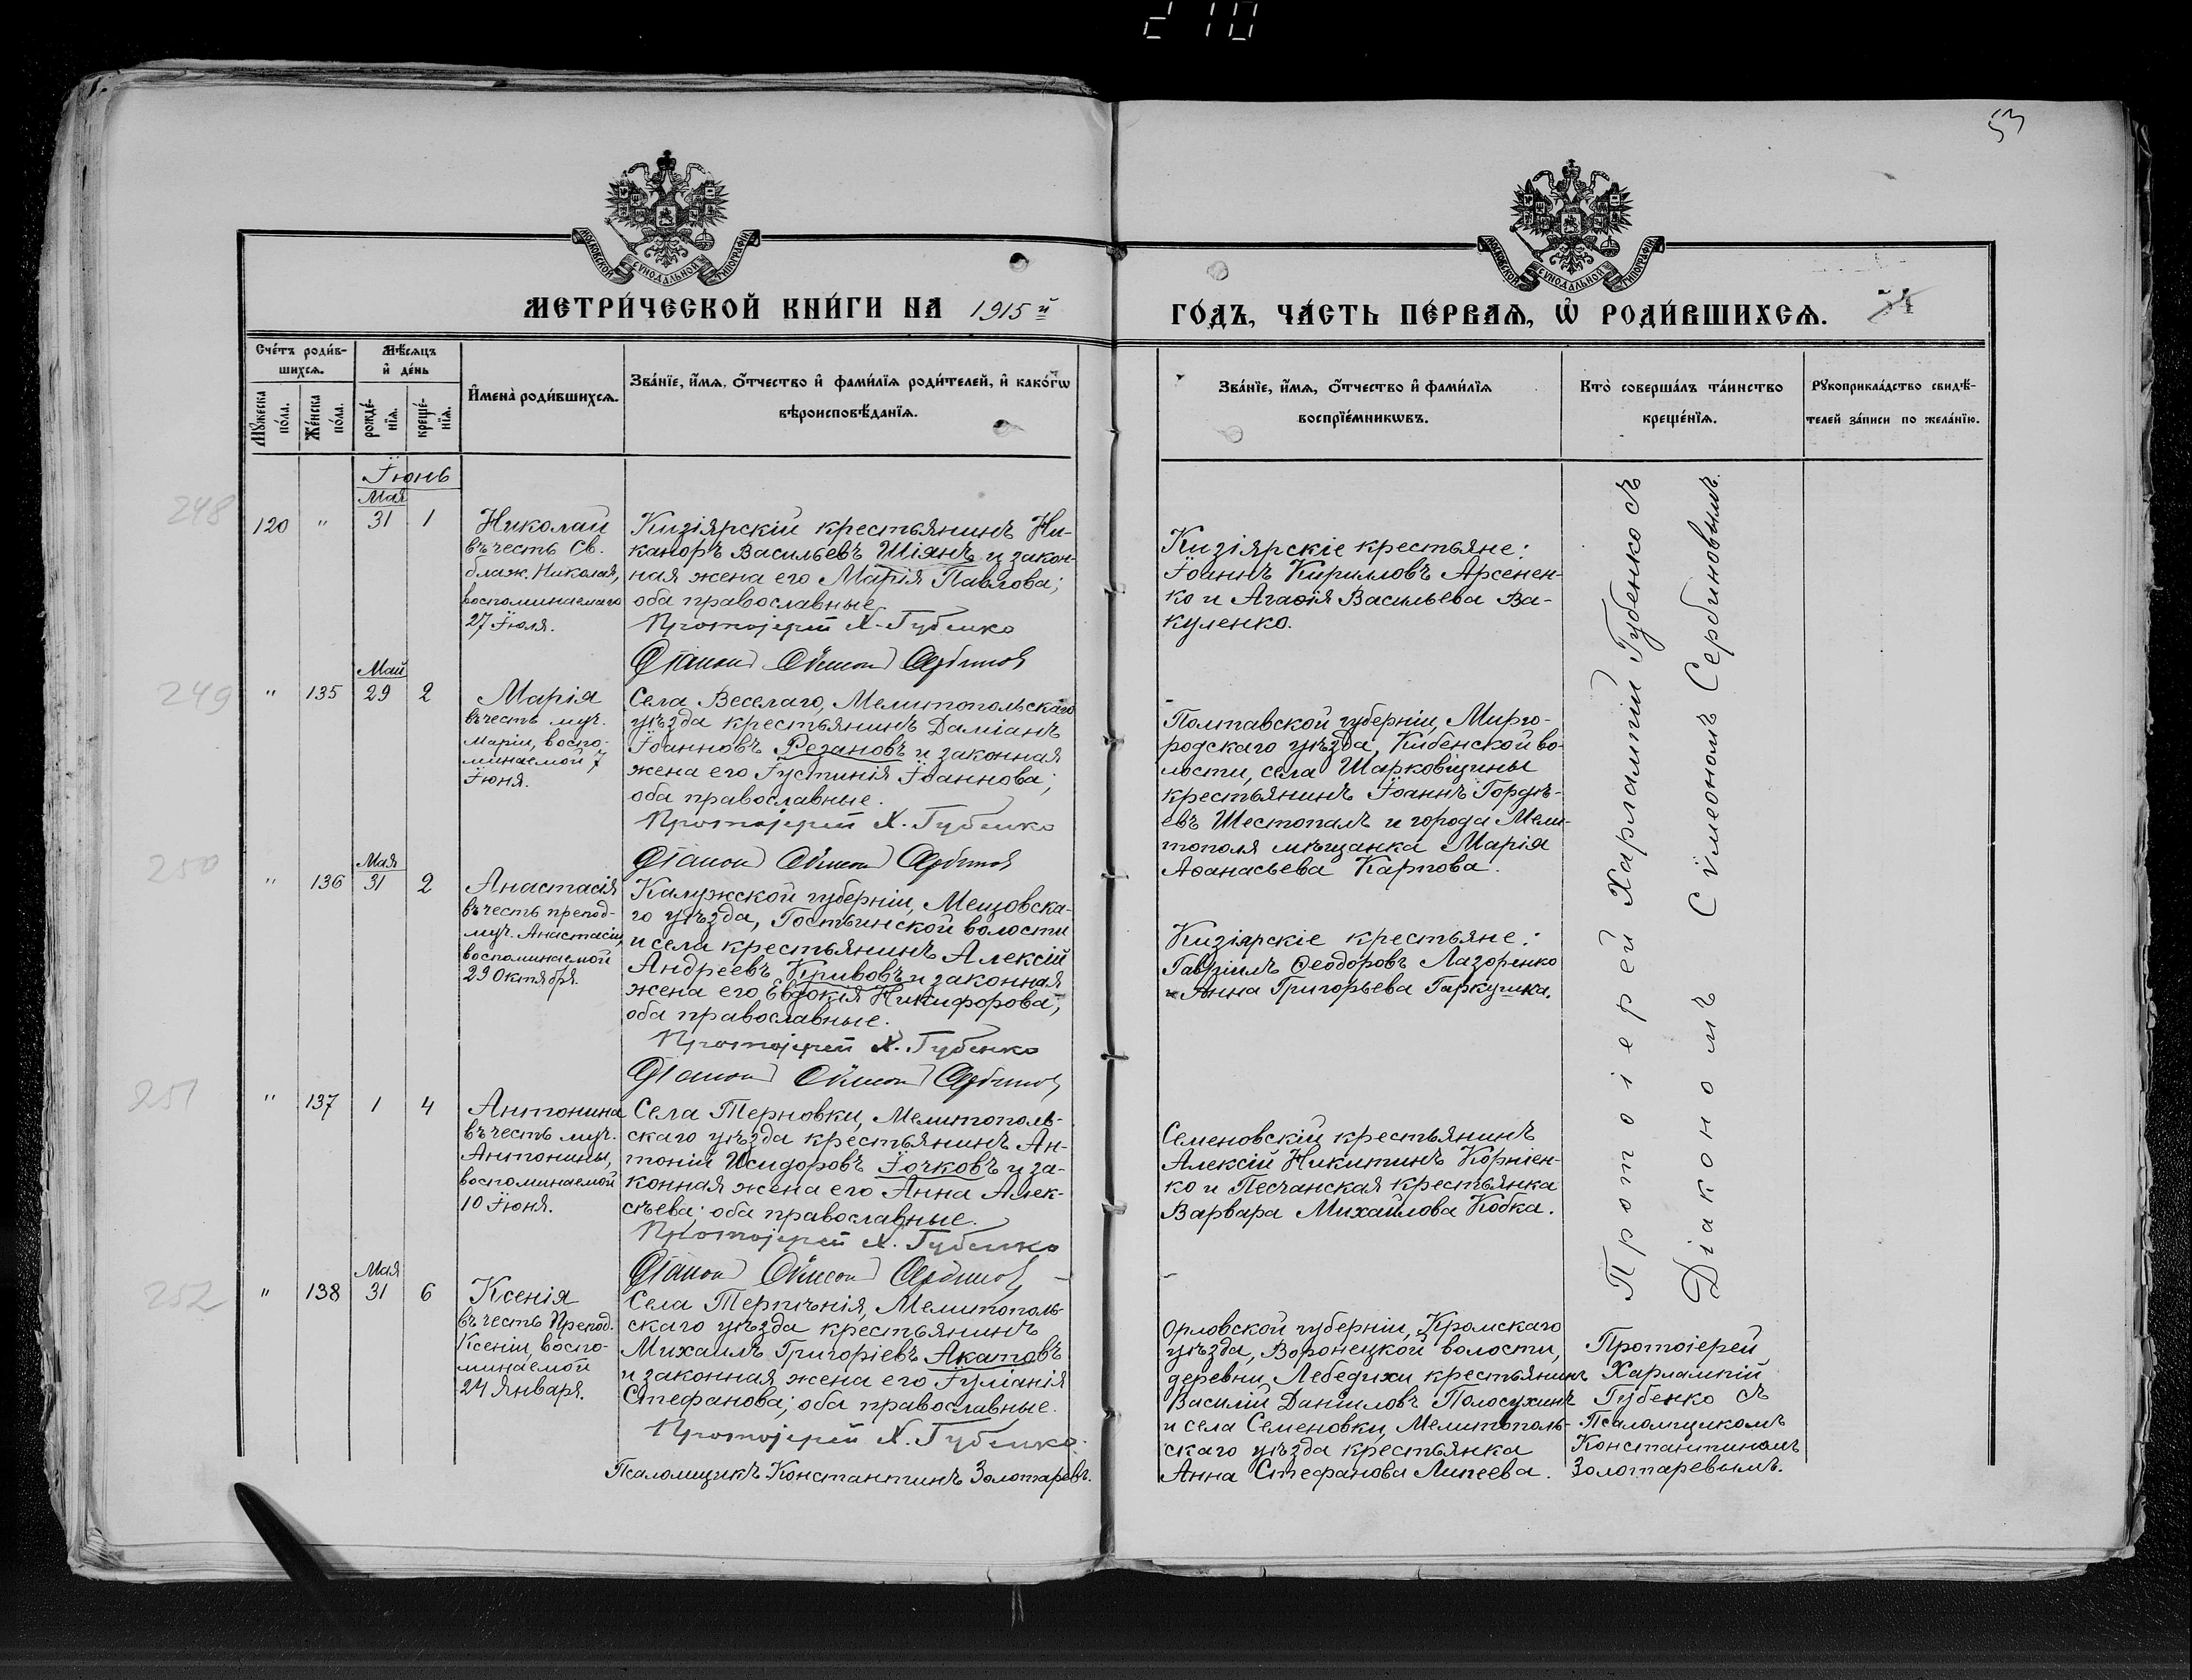 210
53
МОСКОВСКОЙ СУНОДАЛЬНОЙ ТИПОГРАФІИ
МОСКОВСКОЙ СУНОДАЛЬНОЙ ТИПОГРАФІИ
МЕТРИ́ЧЕСКОЙ КНИ́ГИ НА 1915й
ГО́ДЪ, ЧА́СТЬ ПЕ́РВАѦ, Ѡ РОДИ́ВШИХСѦ.
54
Сче́тъ роди́в-
шихсѧ.
Мѣ́сѧцъ
и҆ де́нь
Мꙋ́жеска
по́ла.
Же́нска
по́ла.
рожде́-
нїѧ.
креще́-
нїѧ.
И҆мена̀ роди́вшихсѧ.
Зва́нїе, и҆́мѧ, ѻ҆́тчество и҆ фами́лїѧ роди́телей, и҆ како́гѡ
вѣроисповѣ́данїѧ.
Зва́нїе, и҆́мѧ, ѻ҆́тчество и҆ фами́лїѧ
воспрїе́мникѡвъ.
Кто̀ соверша́лъ та́инство
креще́нїѧ.
Рꙋкоприкла́дство свидѣ́-
телей за́писи по жела́нїю.
Іюнь
248
120 " Мая 31 1
Николай
въ честь Св.
блаж. Николая,
воспоминаемаго
27 Іюля.
Кизіярскій крестьянинъ Ни-
каноръ Васильевъ Шіянъ и закон-
ная жена его Марія Павлова;
оба православные
Протоіерей Х. Губенко
Діаконъ Сѵмеонъ Сербиновъ
Кизіярскіе крестьяне:
Іоаннъ Кирилловъ Арсенен-
ко и Агаѳія Васильева Ва-
куленко.
249
" 135 Май 29 2
Марія
въ честь муч.
Маріи, воспо-
минаемой 7
Іюня.
Села Веселаго, Мелитопольскаго
уѣзда крестьянинъ Даміанъ
Іоанновъ Резановъ и законная
жена его Іустинія Іоаннова;
оба православные.
Протоіерей Х. Губенко
Діаконъ Сѵмеонъ Сербиновъ
Полтавской губерніи, Мирго-
родскаго уѣзда, Кибенской во-
лости, села Шарковщины
крестьянинъ Іоаннъ Гордѣ-
евъ Шестопалъ и города Мели-
тополя мѣщанка Марія
Аѳанасьева Карпова.
250
" 136 Мая 31 2
Анастасія
въ честь препод-
муч. Анастасіи,
воспоминаемой
29 Октября.
Калужской губерніи, Мещовска-
го уѣзда, Гостьинской волости
и села крестьянинъ Алексій
Андреевъ Кривовъ и законная
жена его Евдокія Никифорова;
оба православные.
Протоіерей Х. Губенко
Діаконъ Сѵмеонъ Сербиновъ
Кизіярскіе крестьяне:
Гавріилъ Ѳеодоровъ Лазоренко
и Анна Григорьева Гаркушка.
251
" 137 1 4
Антонина
въ честь муч.
Антонины,
воспоминаемой
10 Іюня.
Села Терновки, Мелитополь-
скаго уѣзда крестьянинъ Ан-
тоній Исидоровъ Іочковъ и за-
конная жена его Анна Алек-
сѣева; оба православные.
Протоіерей Х. Губенко
Діаконъ Сѵмеонъ Сербиновъ
Семеновскій крестьянинъ
Алексій Никитинъ Корніен-
ко и Песчанская крестьянка
Варвара Михайлова Кобка.
252
" 138 Мая 31 6
Ксенія
въ честь Препод.
Ксеніи, воспо-
минаемой
24 Января.
Села Терпѣнія, Мелитополь-
скаго уѣзда крестьянинъ
Михаилъ Григоріевъ Акатовъ
и законная жена его Іуліанія
Стефанова; оба православные.
Протоіерей Х. Губенко
Псаломщикъ Константинъ Золотаревъ.
Орловской губерніи, Кромскаго
уѣзда, Воронецкой волости,
деревни Лебедихи крестьянинъ
Василій Даниловъ Полосухинъ
и села Семеновки, Мелитополь-
скаго уѣзда крестьянка
Анна Стефанова Линеева.
Протоіерей Харлампій Губенко съ
Діакономъ Сѵмеономъ Сербиновымъ.
Протоіерей
Харлампій
Губенко съ
Псаломщикомъ
Константиномъ
Золотаревымъ.